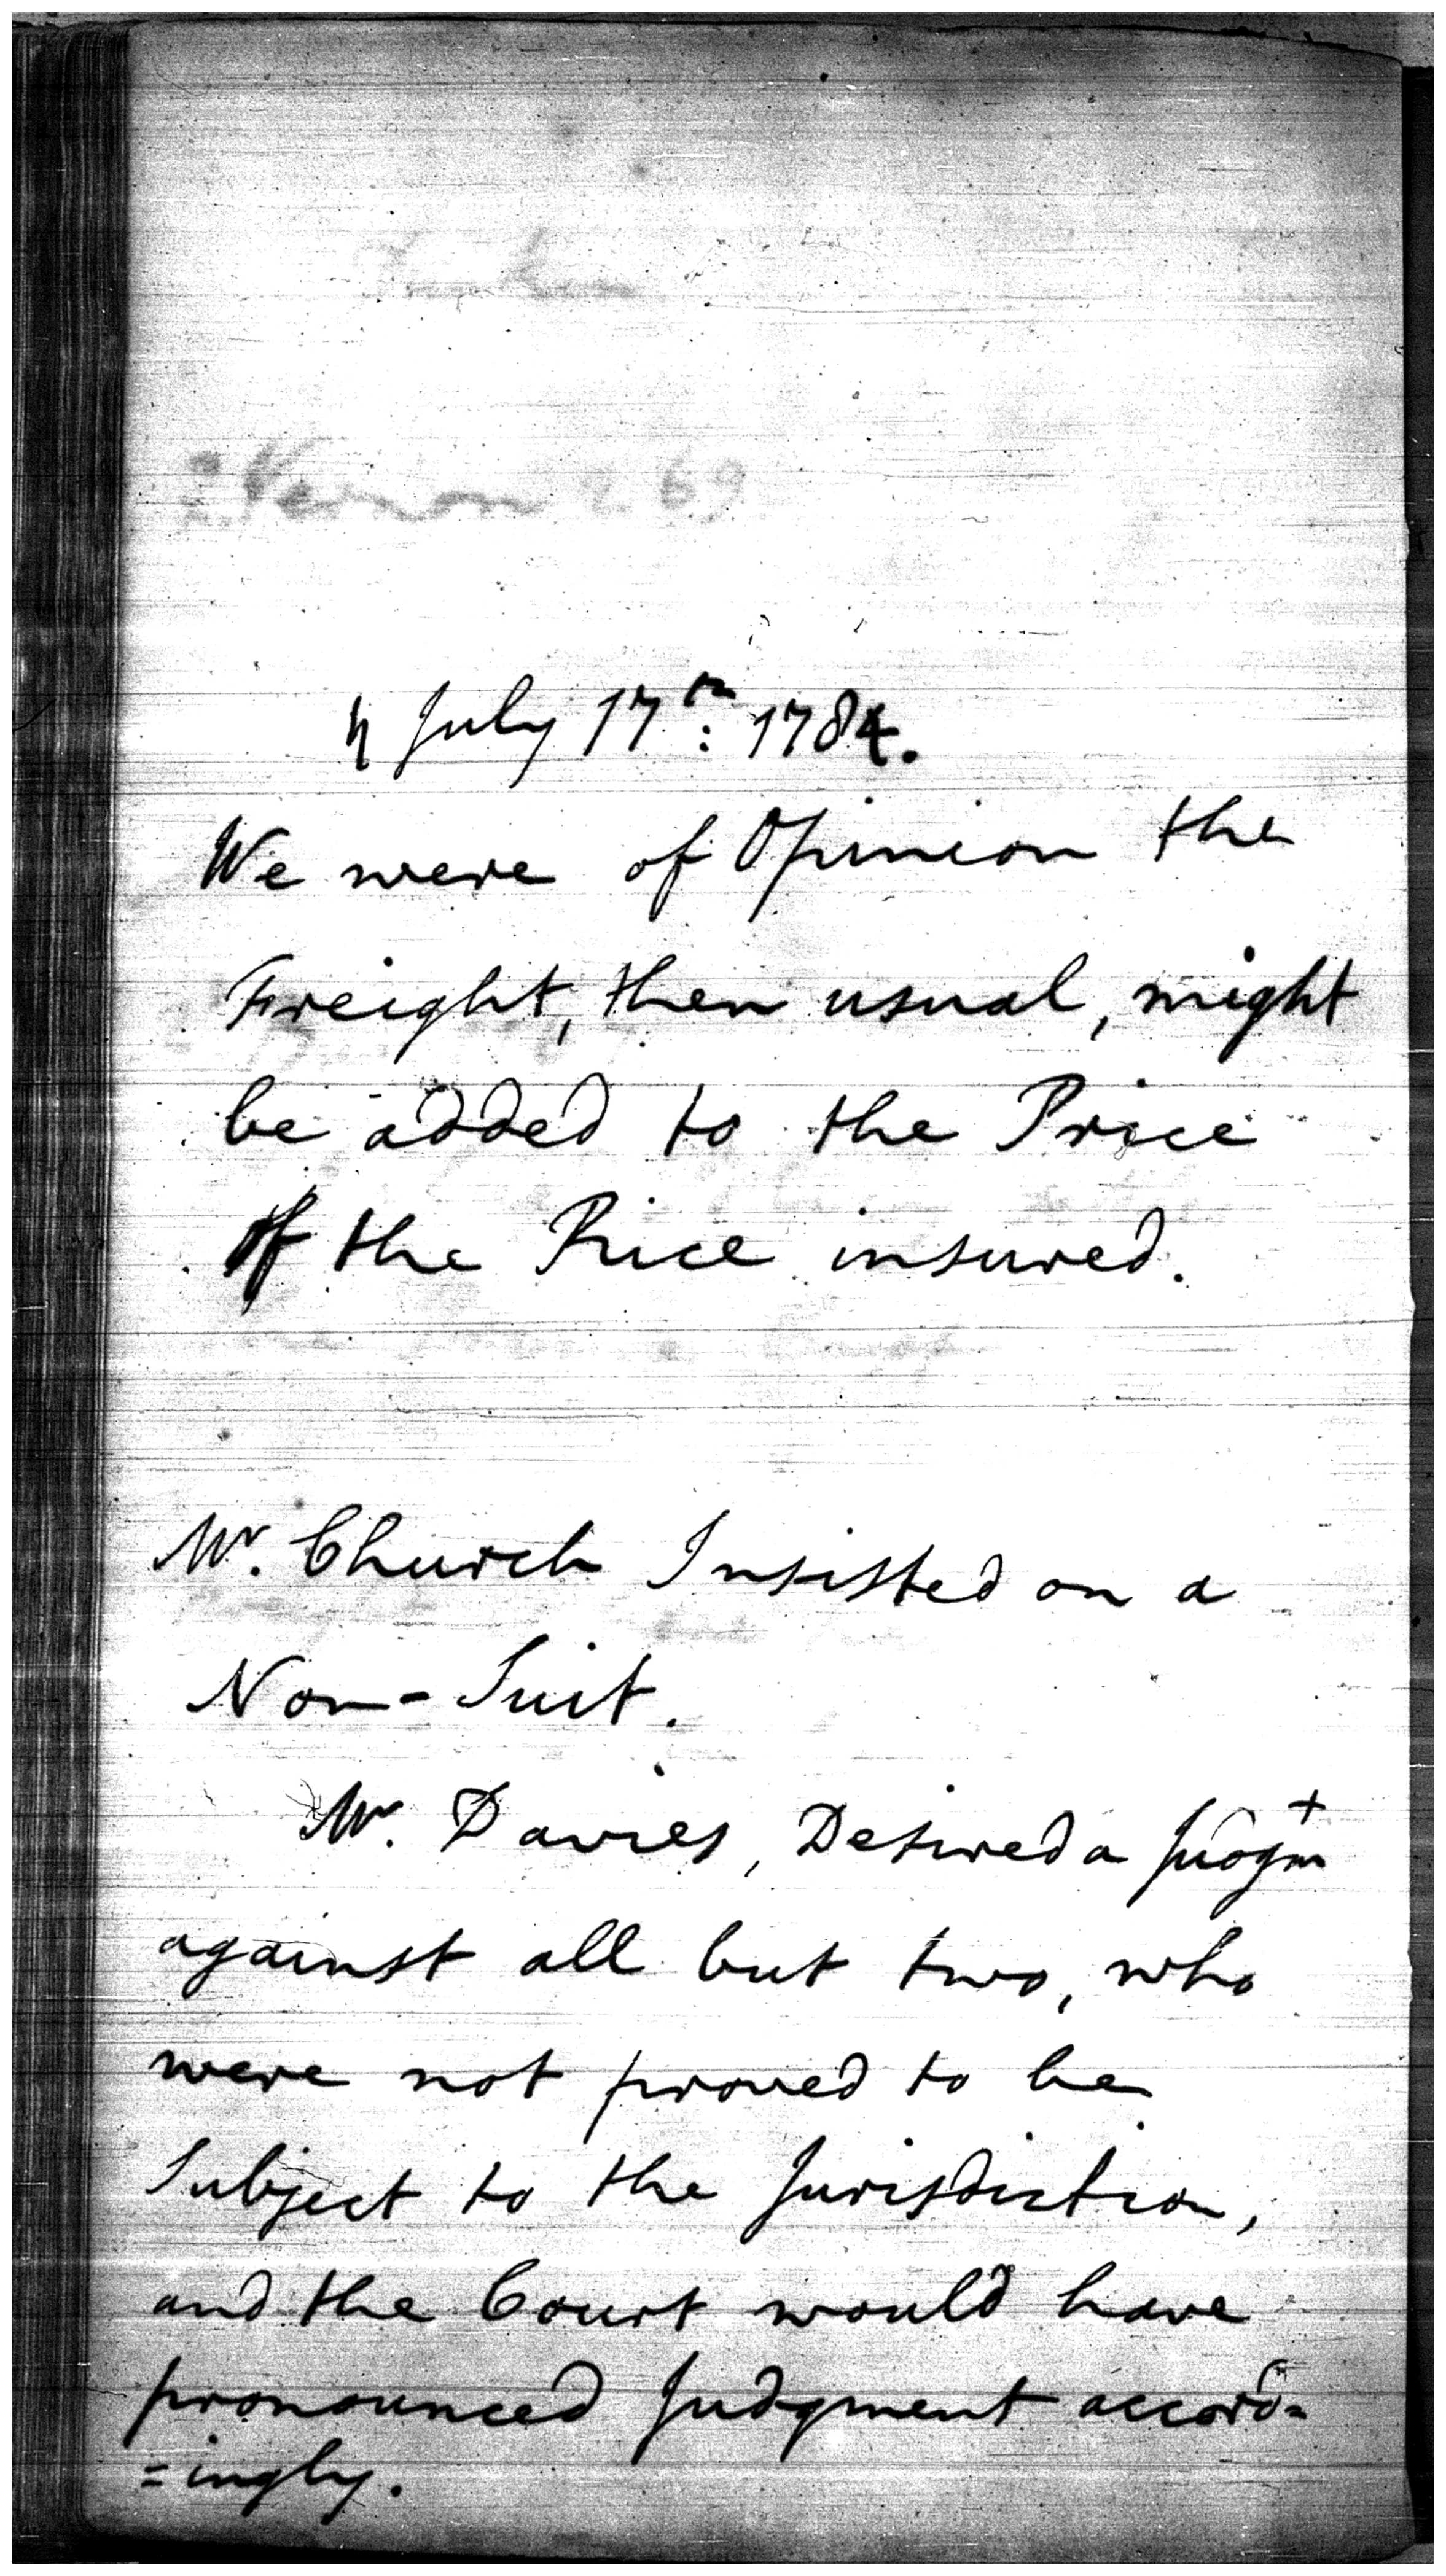 2. Vernon 269
♄ July 17th: 1784.
We were of Opinion the
Freight, then usual, might
be added to the Price
of the Rice insured.
Mr. Church Insisted on a
Non-Suit.
Mr. Davies, Desired a Judgmt
against all but two, who
were not proved to be
Subject to the Jurisdiction,
and the Court would have
pronounced Judgment accord=
=ingly.